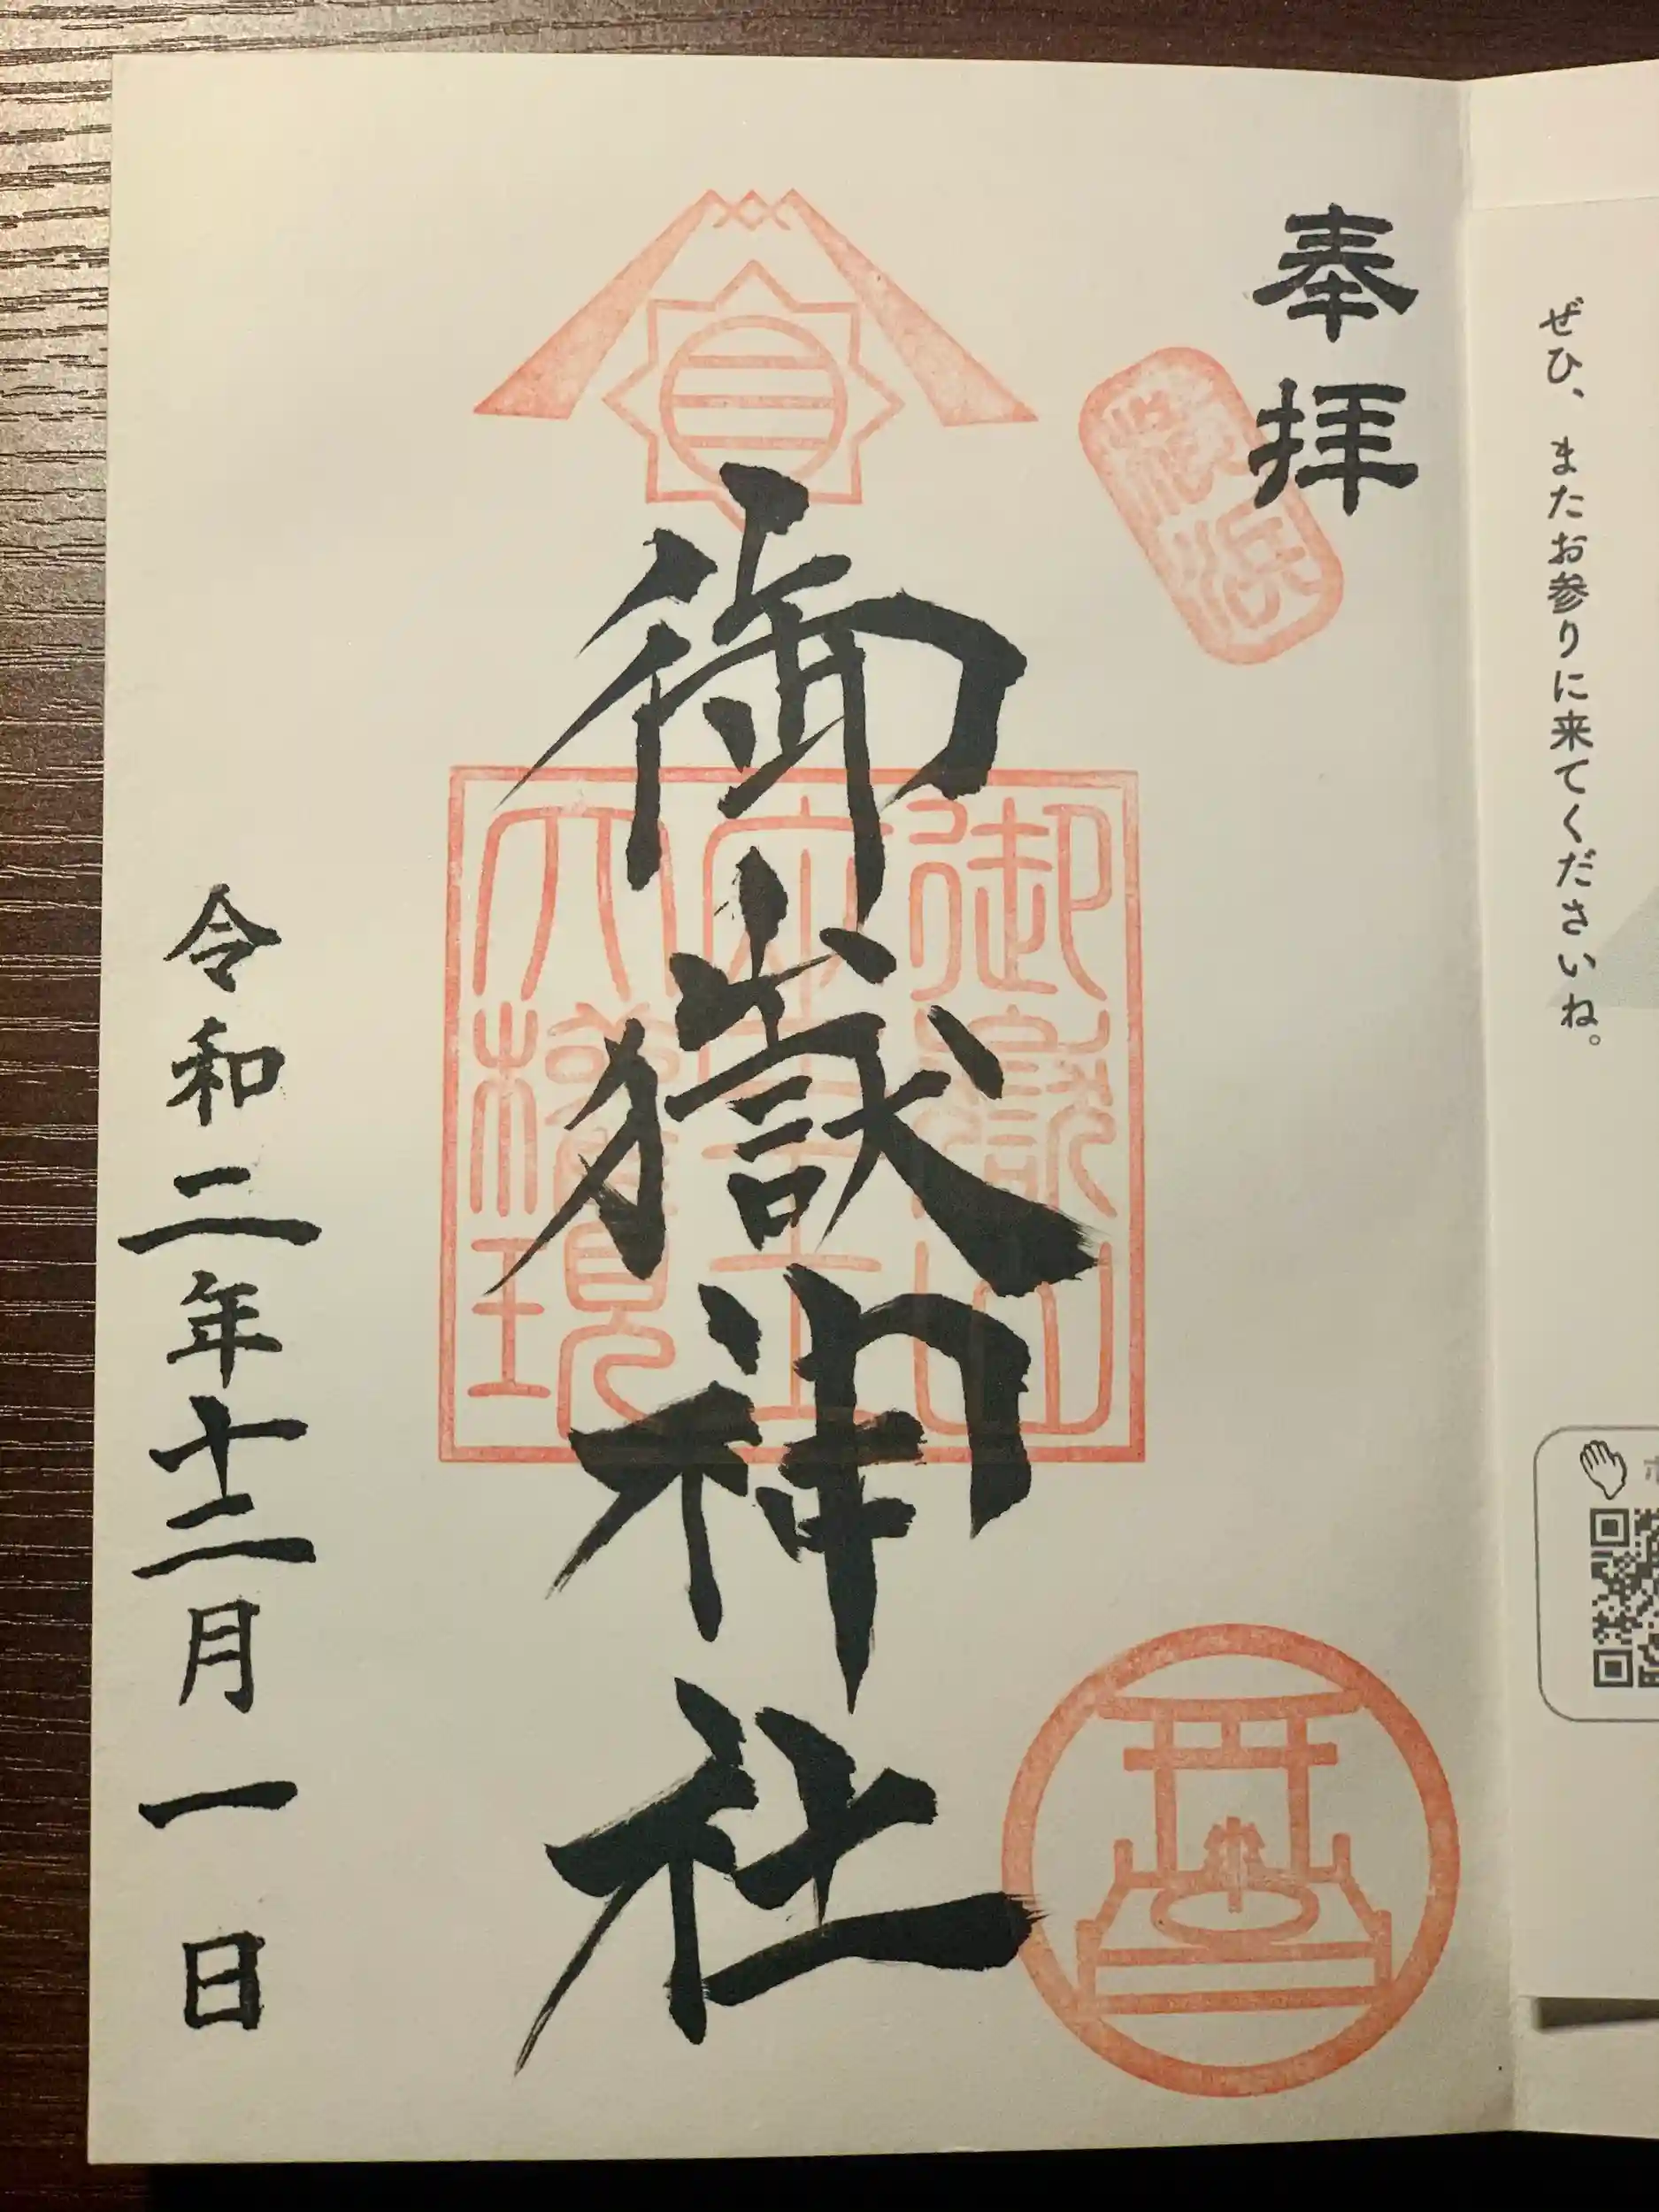 ぜひ、またお参りに来てくださいね。
奉拝
御嶽神社
御嶽山
大權現
令和二年十二月一日